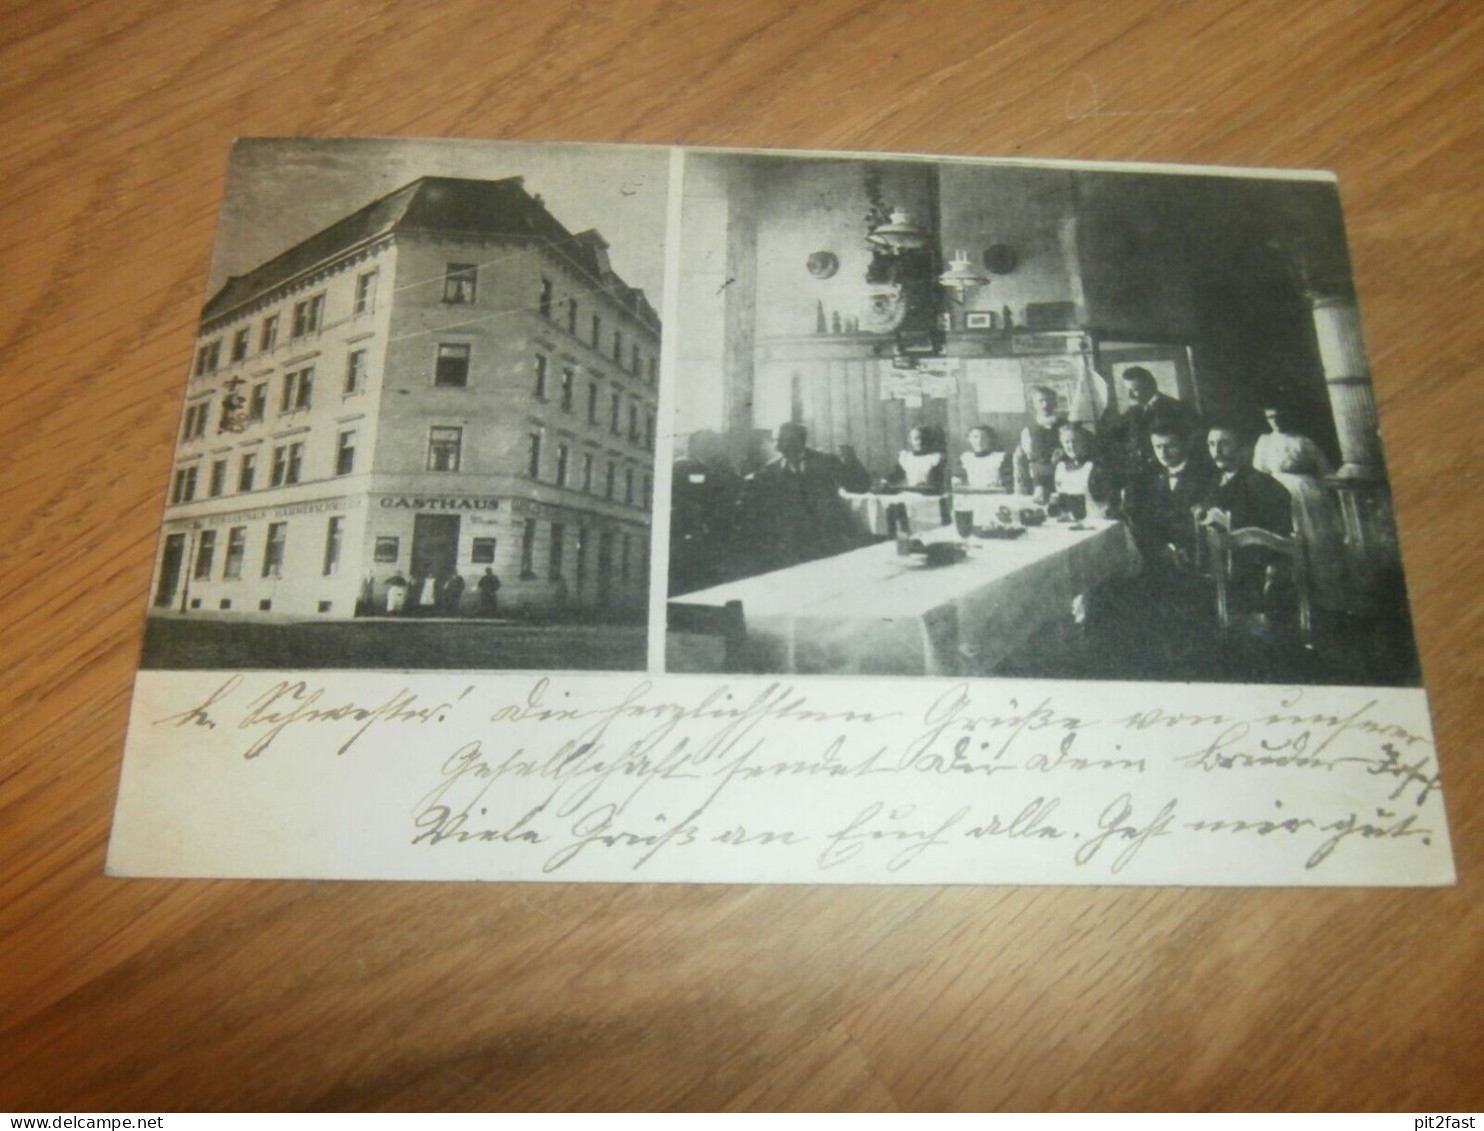 GASTHAUS
HAMMERSCHMIEDE
L. Schwester! Die herzlichsten Grüße von unserer
Gesellschaft sendet Dir Dein Bruder Josef
Viele Grüß an Euch alle. Geht mir gut.
delcampe.net
pit2fast